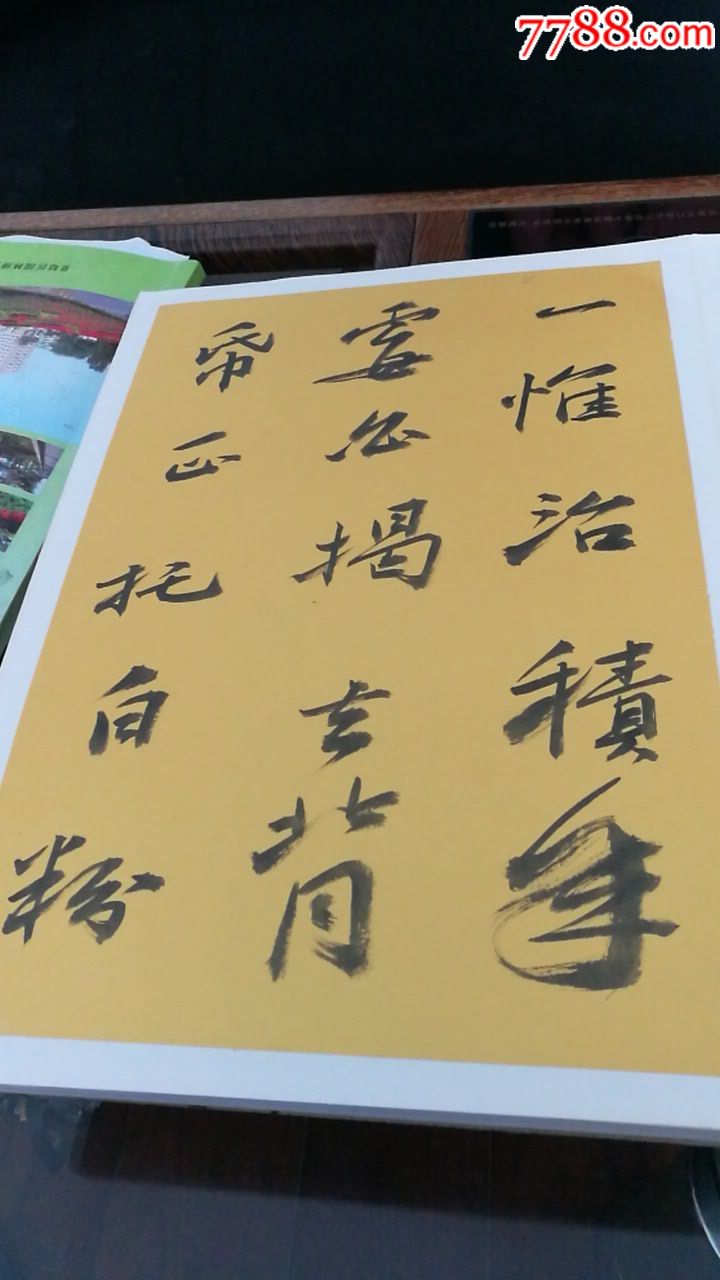 7788.com
一惟治積年
揭去背
帋正托白粉